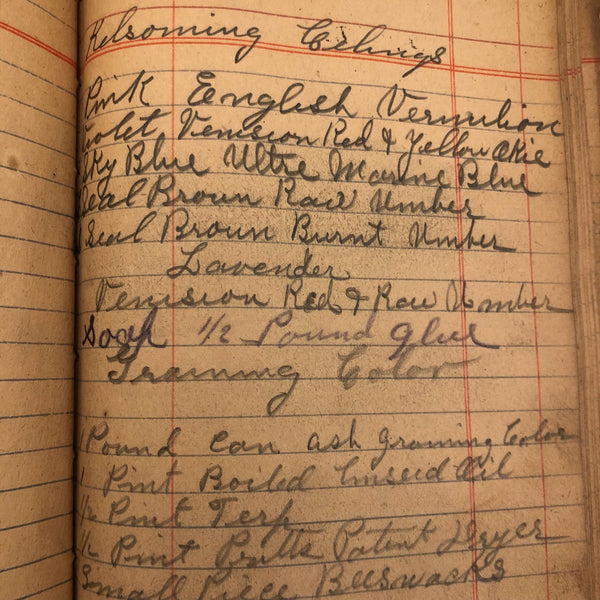 Kelsoming Celings
Pink English Vermilion
Violet Venision Red & Yellow Okie
Sky Blue Ultre Marine Blue
Seal Broun Raw Umber
1 Seal Broun Burnt Umber
Lavender
Venision Red & Raw Umber
Soak 1/2 Pound glue
Graining Color
1 Pound Can ash graining Color
1 Pint Boiled Linseed Oil
1/2 Pint Terp
1/2 Pint Pratts Patent Dryer
Small Piece Beeswacks